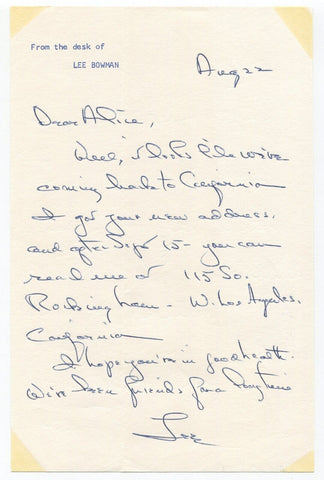 From the desk of
LEE BOWMAN
Aug 22
Dear Alice,
Well, it looks like we're
coming back to California
I got your new address.
and after Sept 15 - you can
reach me at 115 So.
Rockingham - W. Los Angeles,
California
I hope you're in good health.
We've been friends for a long time
Lee